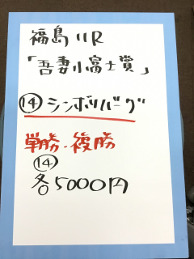 福島11R
「吾妻小富士賞」
⑭シンボリバーグ
単勝・複勝
⑭
各5000円